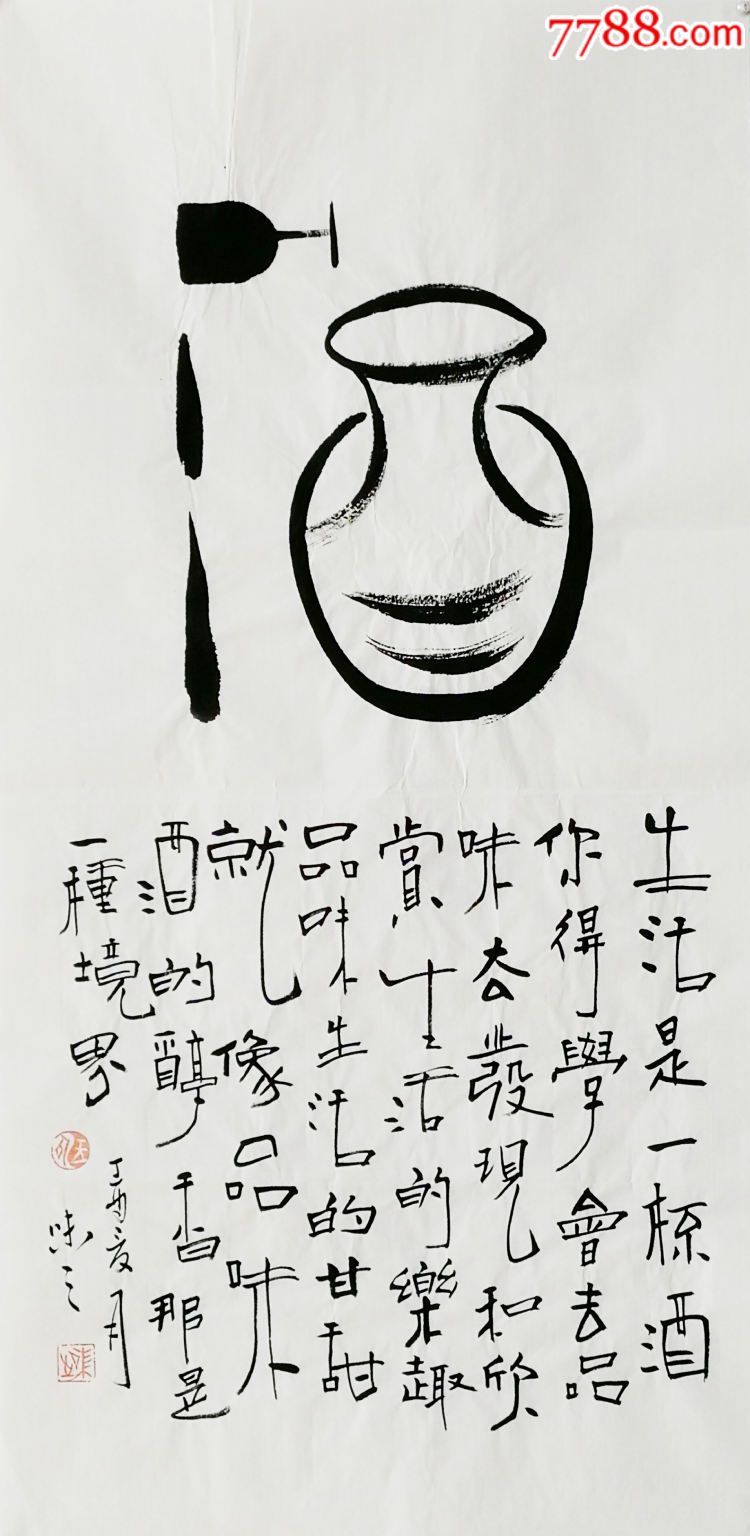 7788.com
生活是一杯酒
你得學會去品
味去發現和欣
賞生活的樂趣
品味生活的甘甜
就像品味
酒的醇香那是
一種境界
丁酉夏月
味之